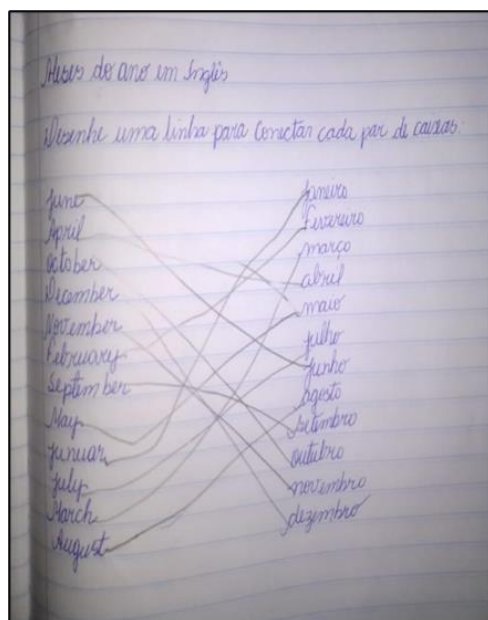 Meses do ano em Inglês
Desenhe uma linha para conectar cada par de caixas.
June
April
October
December
November
February
September
May
Januar
July
March
August
Janeiro
Fevereiro
março
abril
maio
julho
junho
agosto
setembro
outubro
novembro
dezembro